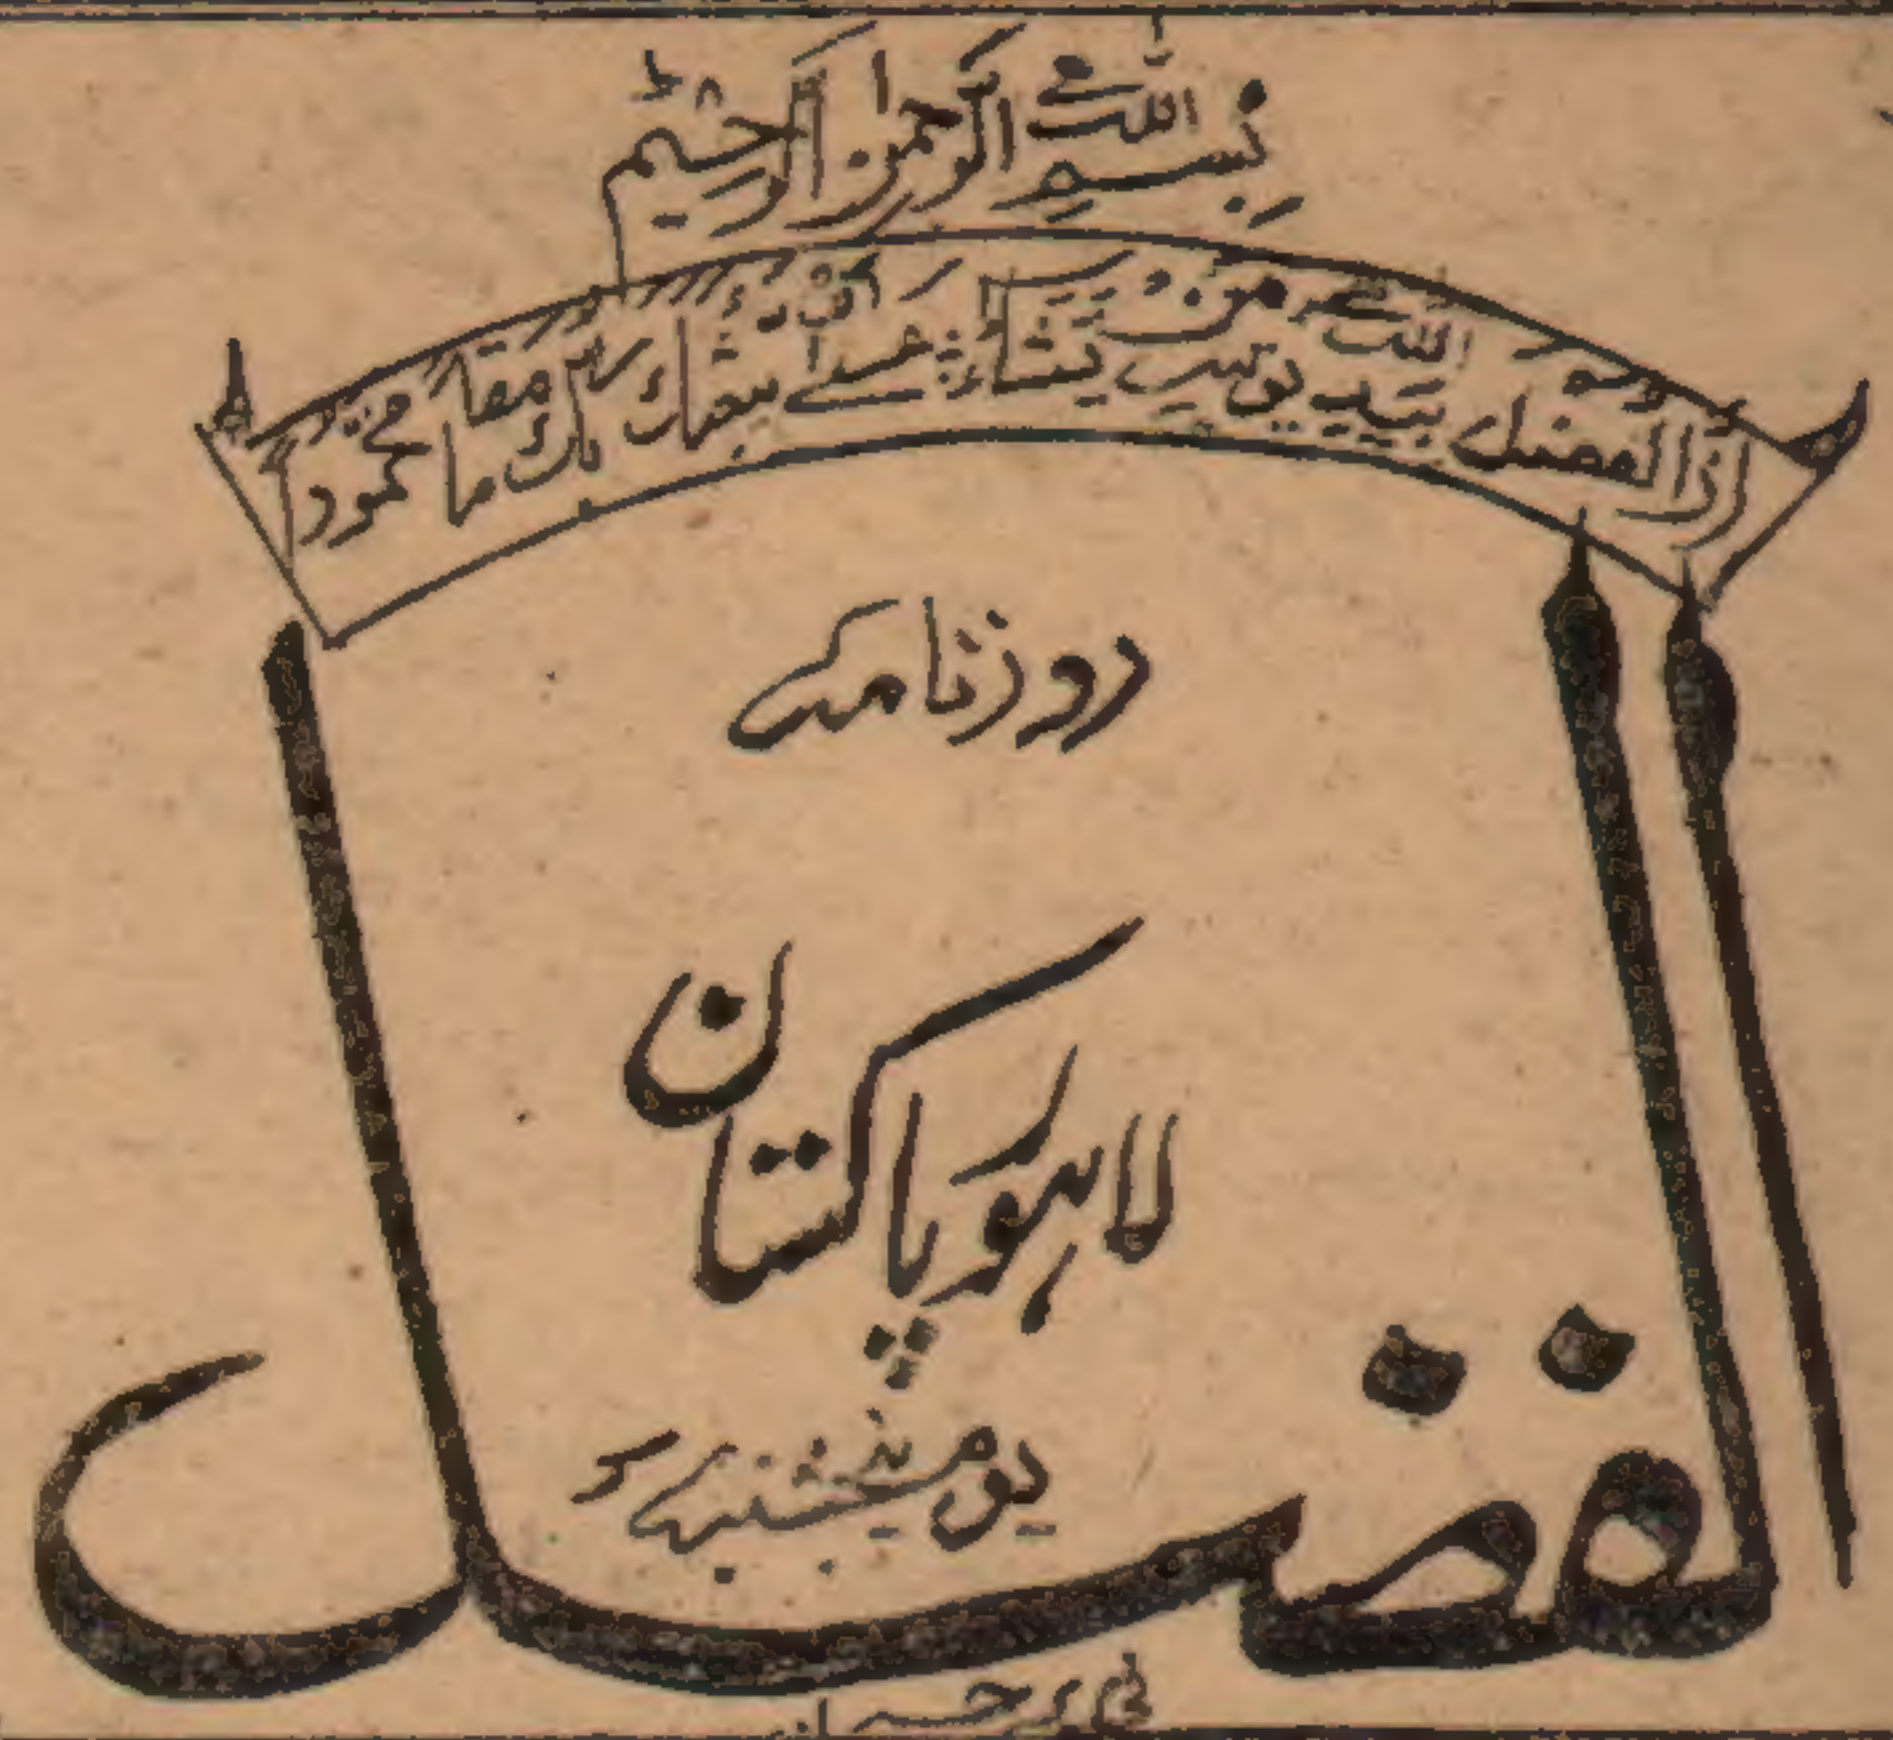 بِسْمِ اللّٰهِ الرَّحْمٰنِ الرَّحِيْمِ
اِنَّ الْفَضْلَ بِيَدِ اللّٰهِ يُؤْتِيْهِ مَنْ يَّشَآءُ عَسٰى اَنْ يَّبْعَثَكَ رَبُّكَ مَقَامًا مَّحْمُوْدًا
روزنامہ
لاہور پاکستان
یوم پنجشنبہ
الفضل
فی پرچہ